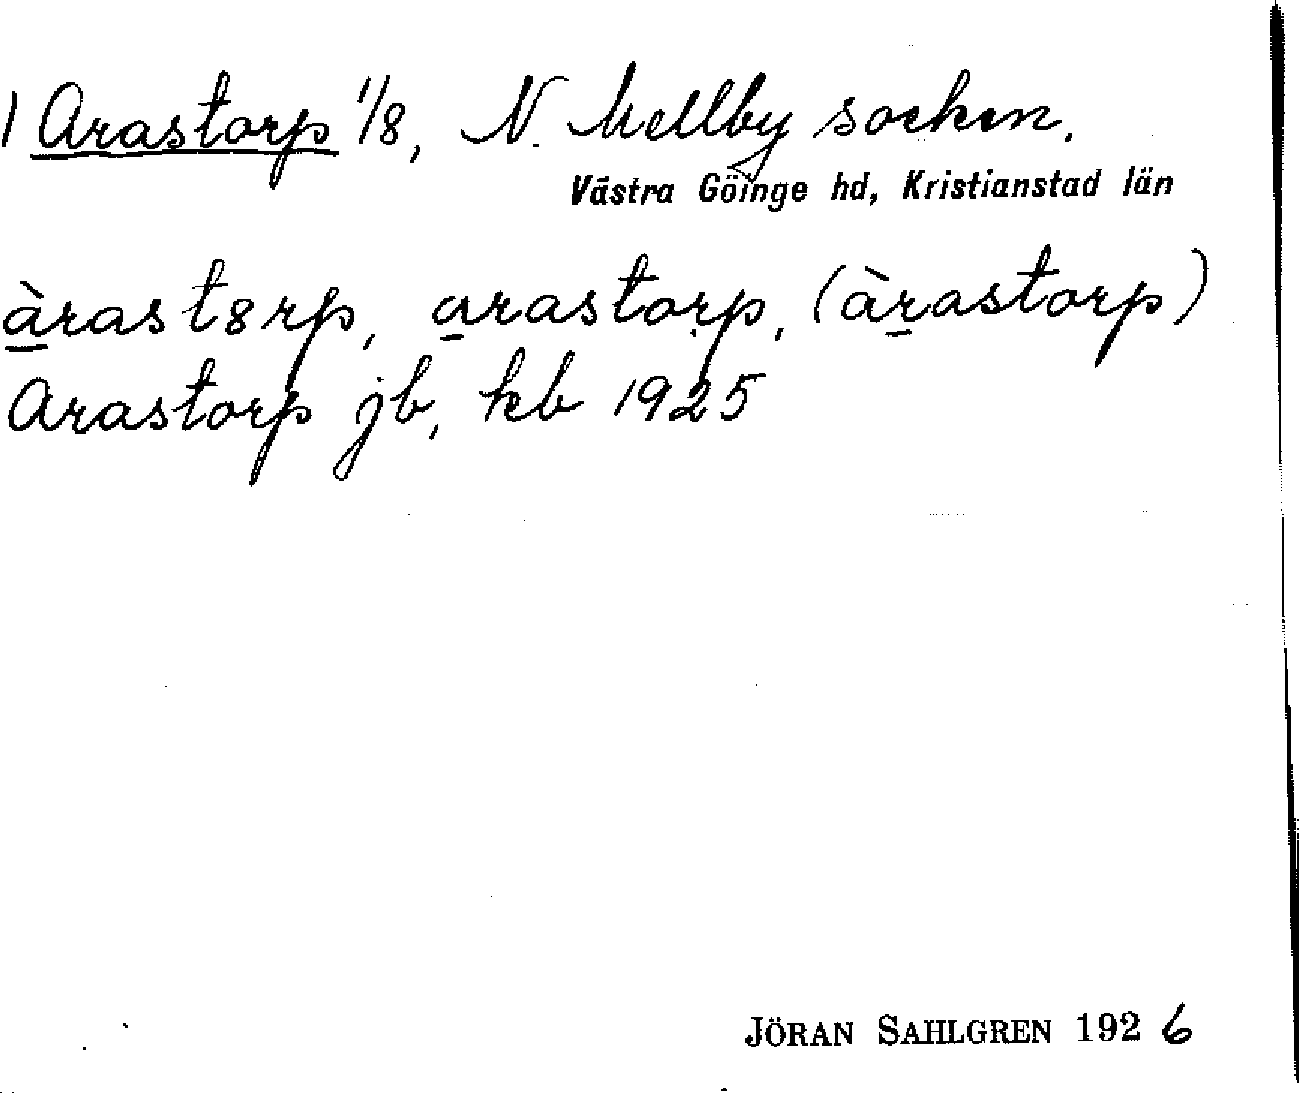 1 Arastorp 1/8, N. Mellby socken.
Västra Göinge hd, Kristianstad län
àrast8rp, arastorp, (àrastorp)
Arastorp jb, kb 1925
JÖRAN SAHLGREN 1926